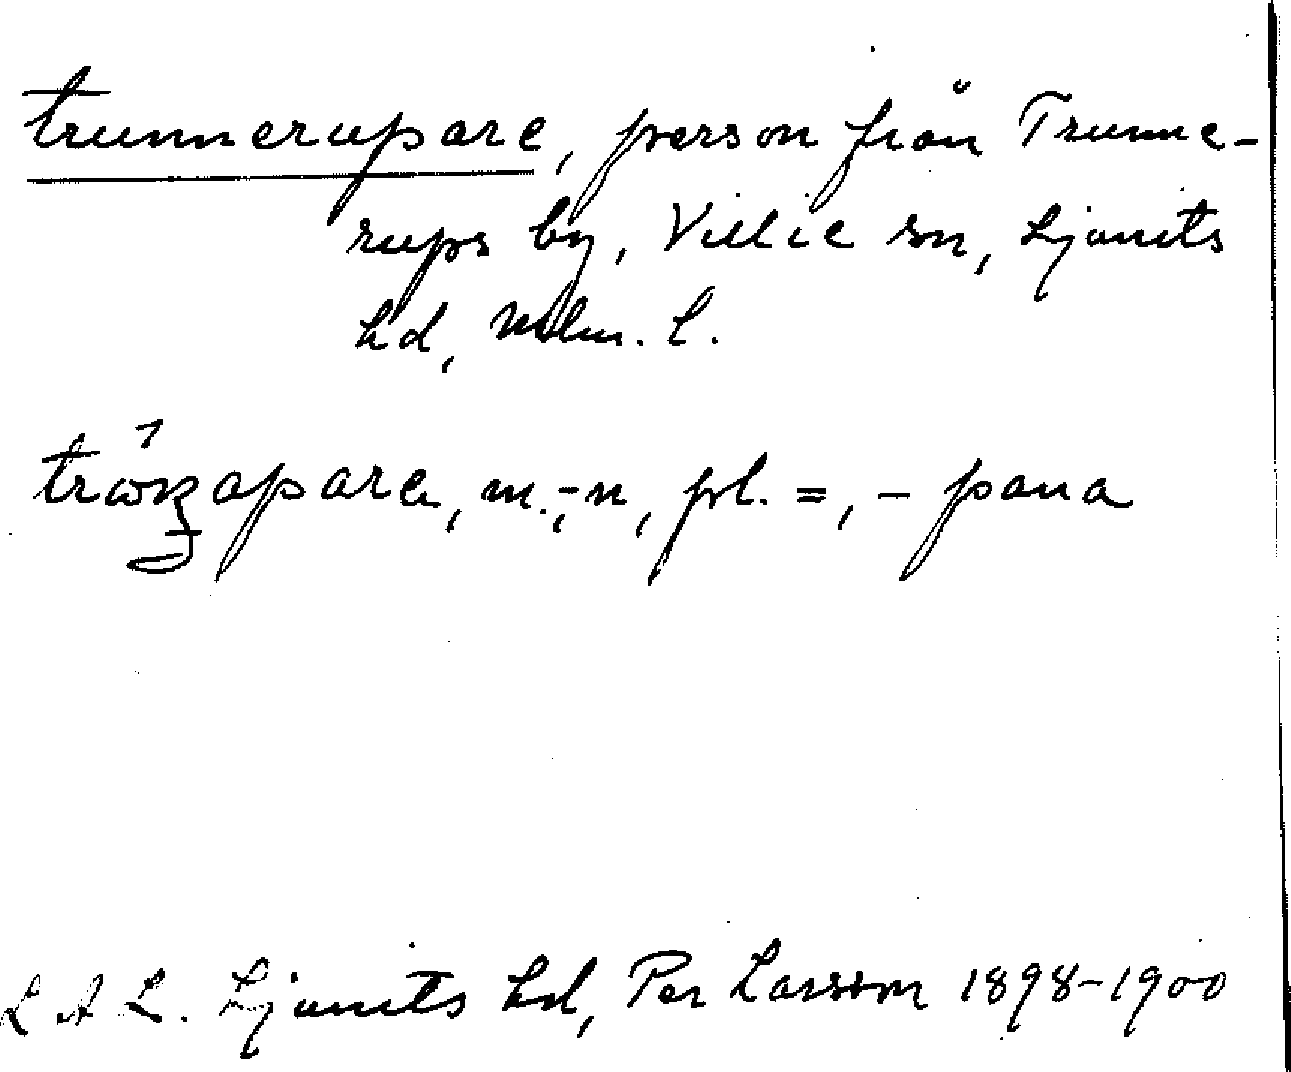 trunnerupare, person från Trunne-
rups by, Villie sn, Ljunits
hd, Mlm. l.
m., -n, pl. =, -pana
L A L. Ljunits hd, Per Larsson 1898-1900